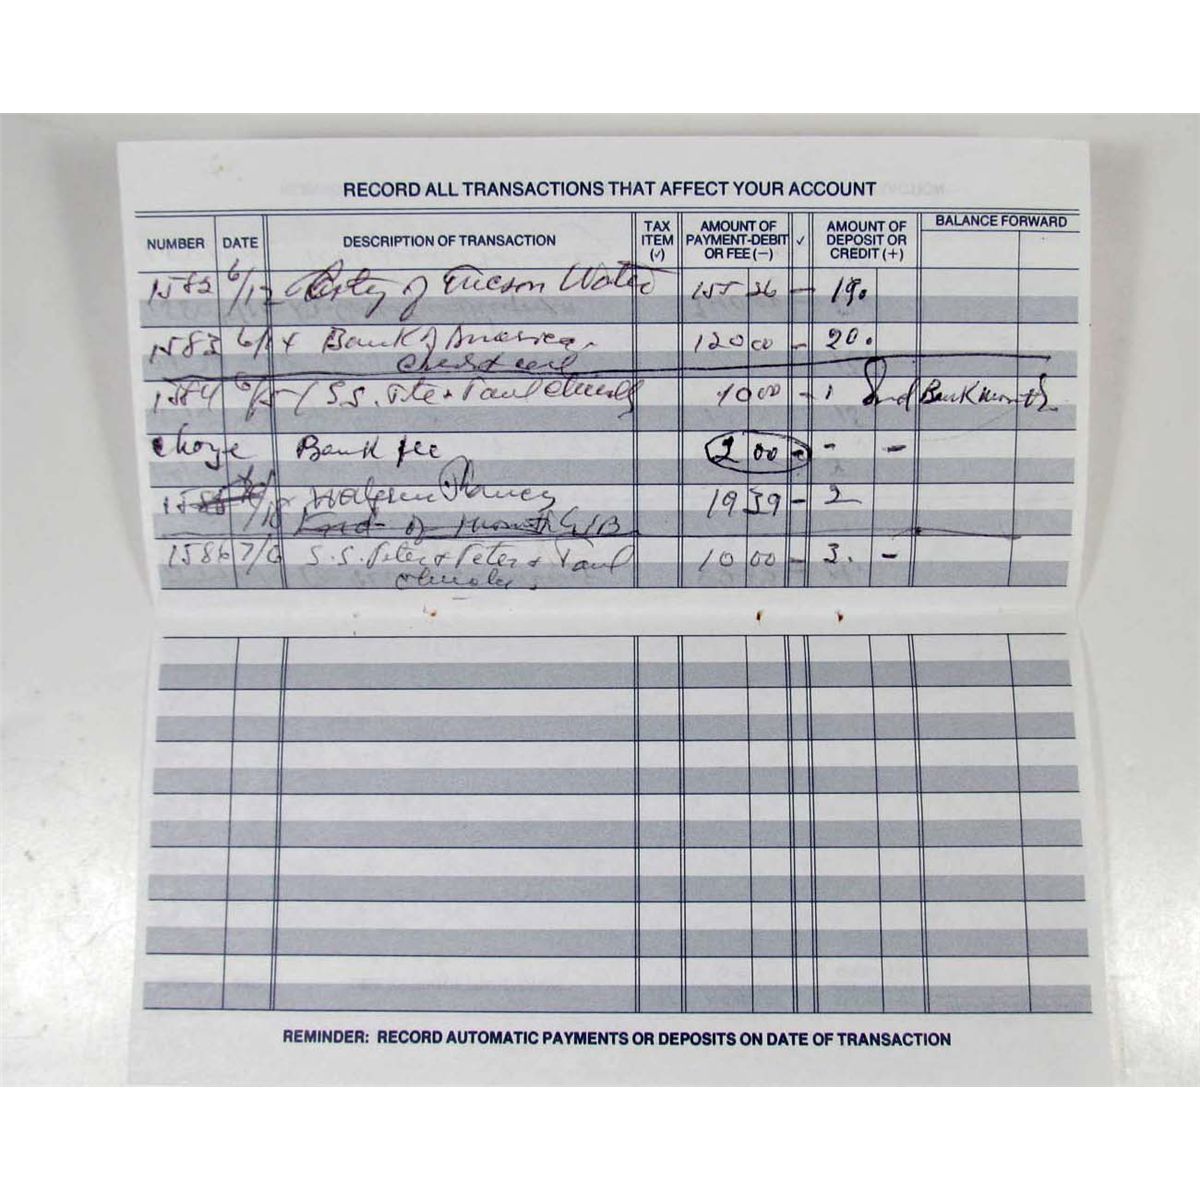 RECORD ALL TRANSACTIONS THAT AFFECT YOUR ACCOUNT
NUMBER DATE DESCRIPTION OF TRANSACTION TAX ITEM (✓) AMOUNT OF PAYMENT-DEBIT OR FEE (−) ✓ AMOUNT OF DEPOSIT OR CREDIT (+) BALANCE FORWARD
1582 6/12 City of Tucson Water 155 26 - 19.
1583 6/14 Bank of America 120 00 - 20.
1584 S.S. Pete + Paul 10 00 - 1 End Bank month
Charge Bank fee 2 00 - - -
Walgreen 19 39 - 2
End of month
1586 7/6 S.S. Peter + Peter + Paul 10 00 - 3. -
REMINDER: RECORD AUTOMATIC PAYMENTS OR DEPOSITS ON DATE OF TRANSACTION